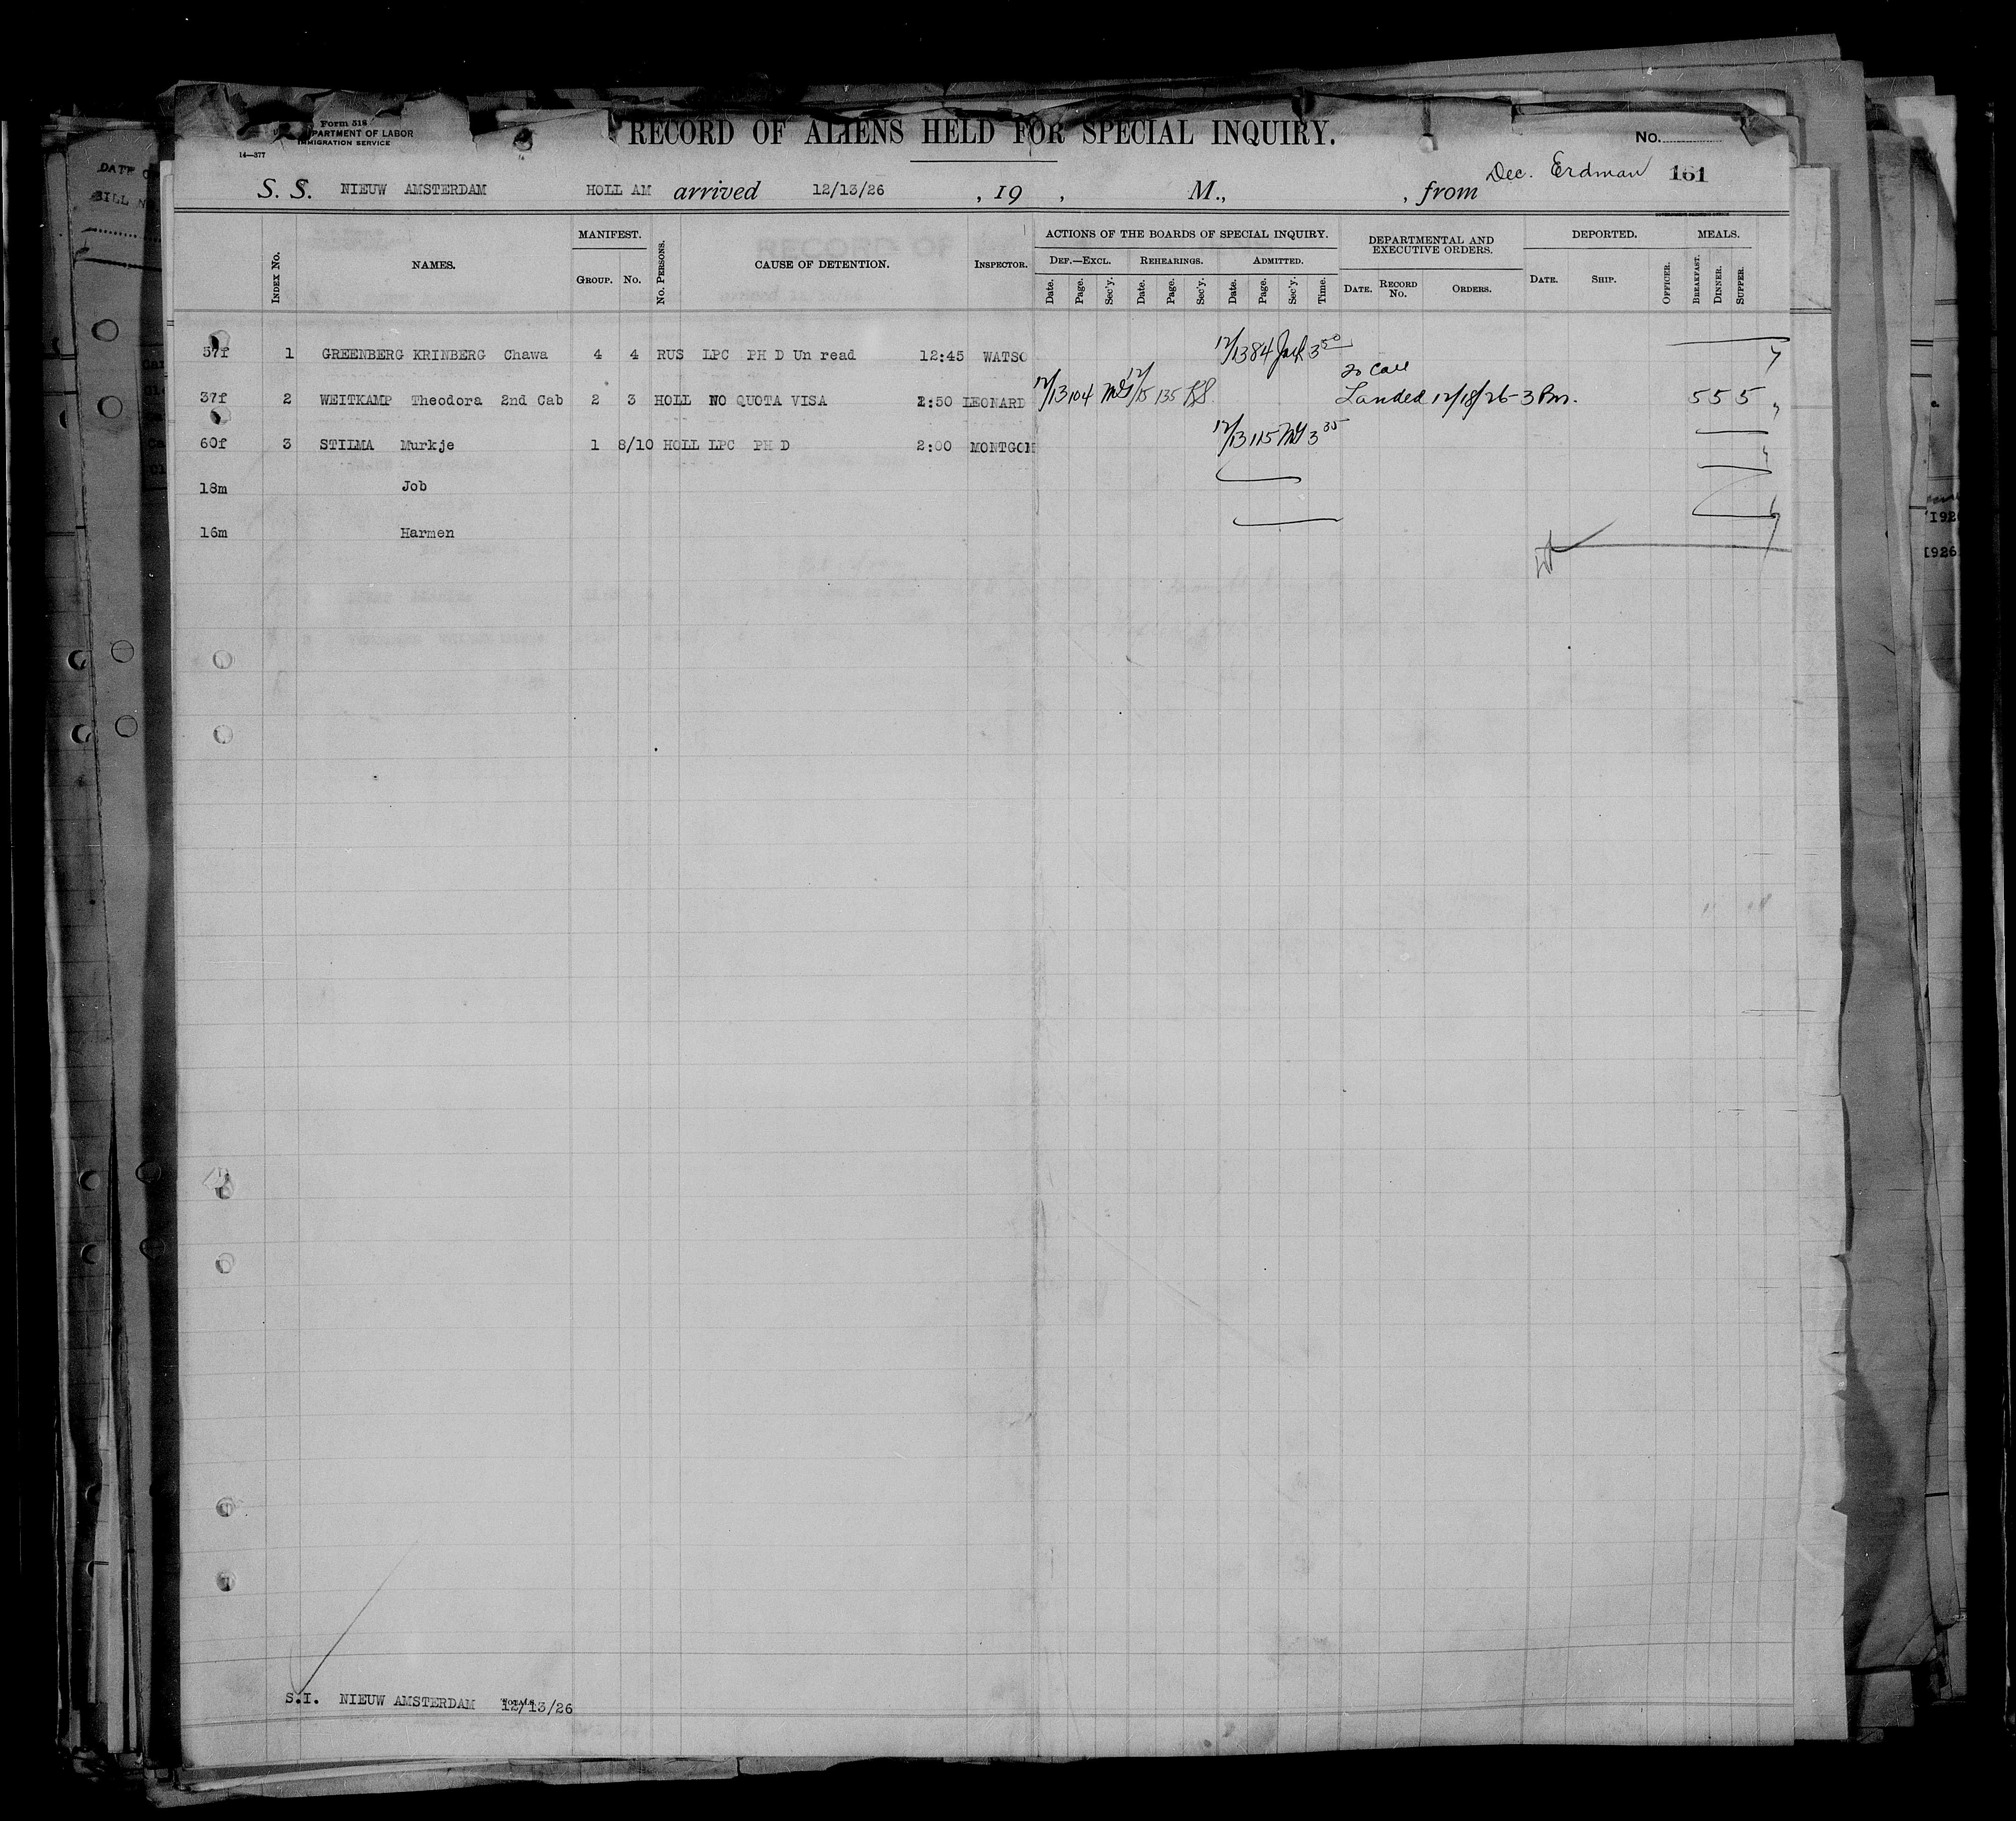 Form 518
PARTMENT OF LABOR
IMMIGRATION SERVICE
14—377
RECORD OF ALIENS HELD FOR SPECIAL INQUIRY.
No.
Dec. Erdman 161
S. S. NIEUW AMSTERDAM HOLL AM arrived 12/13/26 , 19 , M., , from
INDEX NO. NAMES. MANIFEST. GROUP. NO. NO. PERSONS. CAUSE OF DETENTION. INSPECTOR.
ACTIONS OF THE BOARDS OF SPECIAL INQUIRY. DEF.—EXCL. REHEARINGS. ADMITTED.
Date. Page. Sec'y. Date. Page. Sec'y. Date. Page. Sec'y. Time.
DEPARTMENTAL AND EXECUTIVE ORDERS. DATE. RECORD NO. ORDERS.
DEPORTED. DATE. SHIP. OFFICER.
MEALS. BREAKFAST. DINNER. SUPPER.
57f 1 GREENBERG KRINBERG Chawa 4 4 RUS LPC PH D Un read 12:45 WATSO 12/13 84 3 50
to call
37f 2 WEITKAMP Theodora 2nd Cab 2 3 HOLL NO QUOTA VISA 2:50 LEONARD 12/13 104 12/15 135 Landed 12/18/26 3 Pm. 5 5 5
60f 3 STILMA Murkje 1 8/10 HOLL LPC PH D 2:00 MONTGOM 12/13 115 3 35
18m Job
16m Harmen
S.I. NIEUW AMSTERDAM 12/13/26
DATE
BILL
1926
1926